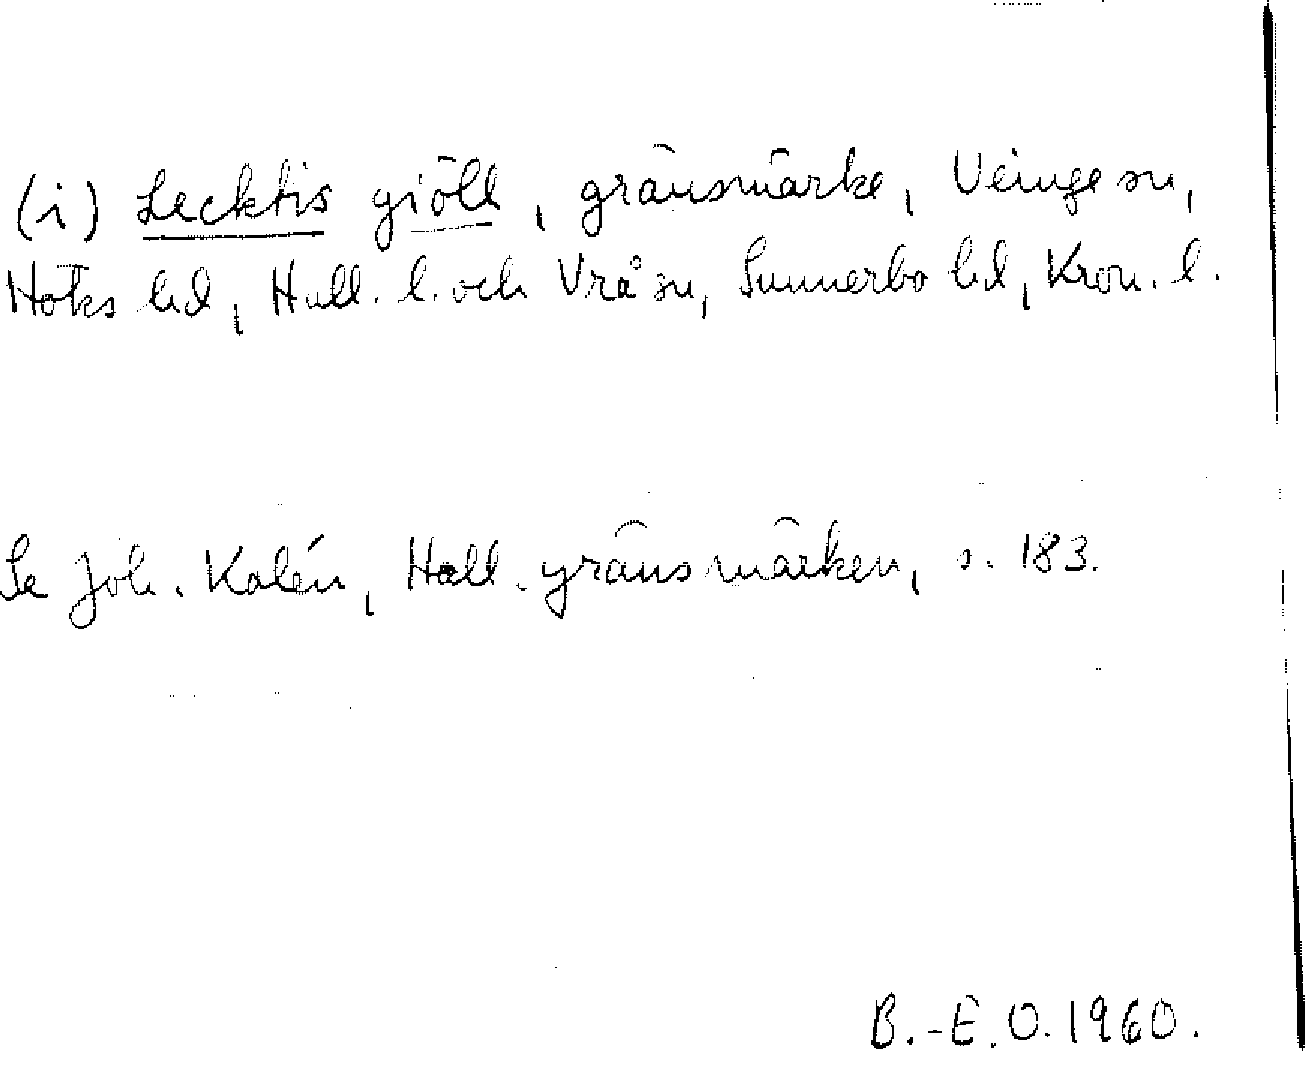 (i) Lecktis giöll, gränsmärke, Veinge sn,
Höks hd, Hall. l. och Vrå sn, Sunnerbo hd, Kron. l.
Se Joh. Kalén, Hall. gränsmärken, s. 183.
B.-E. O. 1960.